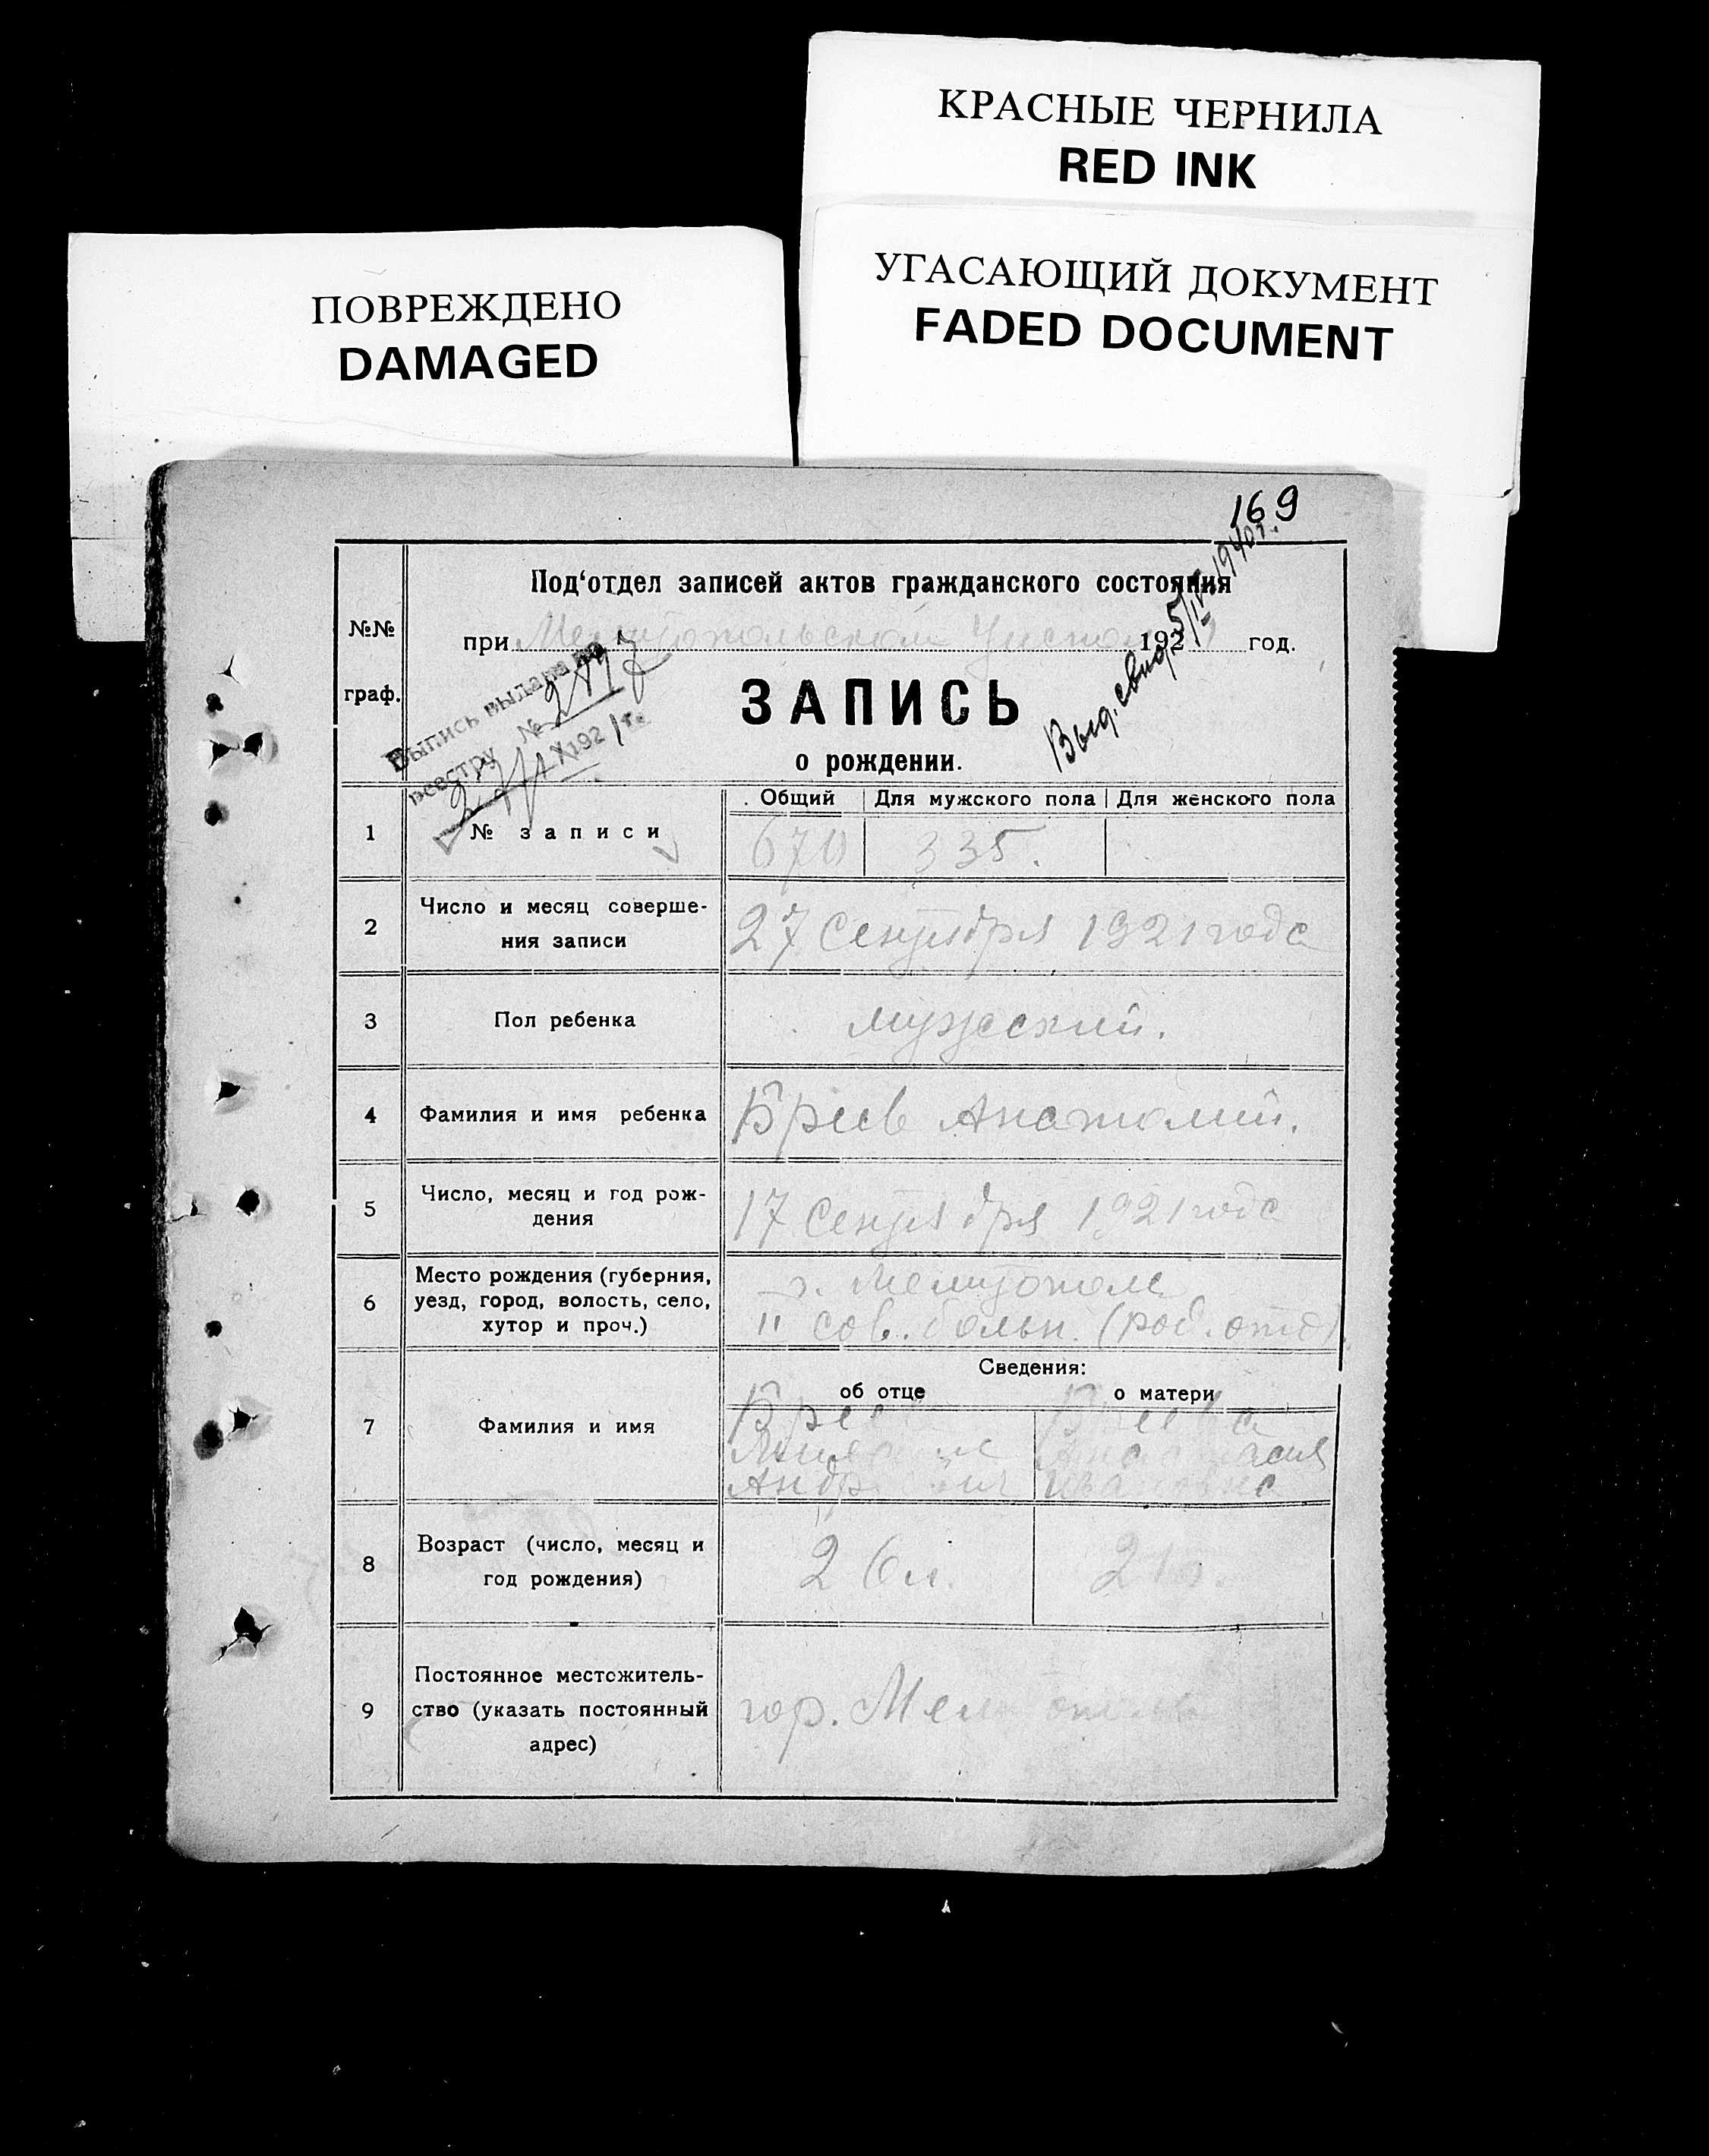 КРАСНЫЕ ЧЕРНИЛА
RED INK
УГАСАЮЩИЙ ДОКУМЕНТ
FADED DOCUMENT
ПОВРЕЖДЕНО
DAMAGED
169
Выд. свид. 5/IV 1940 г.
№№
граф.
Под‘отдел записей актов гражданского состояния
при Мелитопольском 192 год.
Выпись выдана по
реестру №
X 1921 г.
ЗАПИСЬ
о рождении.
Общий Для мужского пола Для женского пола
1 № записи 670 335.
2 Число и месяц соверше-
ния записи
27 Сентября 1921 года
3 Пол ребенка мужеский.
4 Фамилия и имя ребенка Бриев Анатолий.
5 Число, месяц и год рож-
дения
17 Сентября 1921 года
6 Место рождения (губерния,
уезд, город, волость, село,
хутор и проч.)
г. Мелитополь
II сов. больн. (род. отд).
Сведения:
об отце о матери
7 Фамилия и имя
Анастасия
Ивановна
8 Возраст (число, месяц и
год рождения)
26 л. 21
9 Постоянное местожитель-
ство (указать постоянный
адрес)
гор. Мелитополь